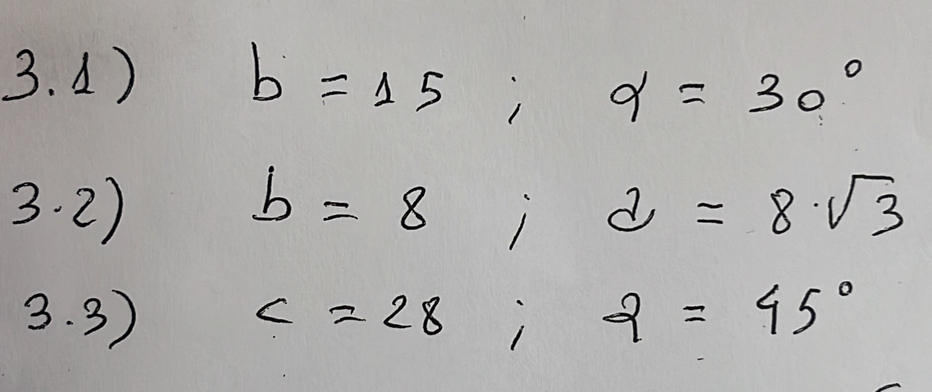 3.1) b = 15 ; α = 30°
3.2) b = 8 ; a = 8·√3
3.3) c = 28 ; α = 45°